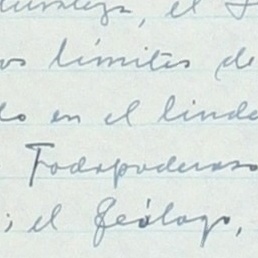 , el
os límites de
do en el linde
Todopoderoso
; el geólogo,